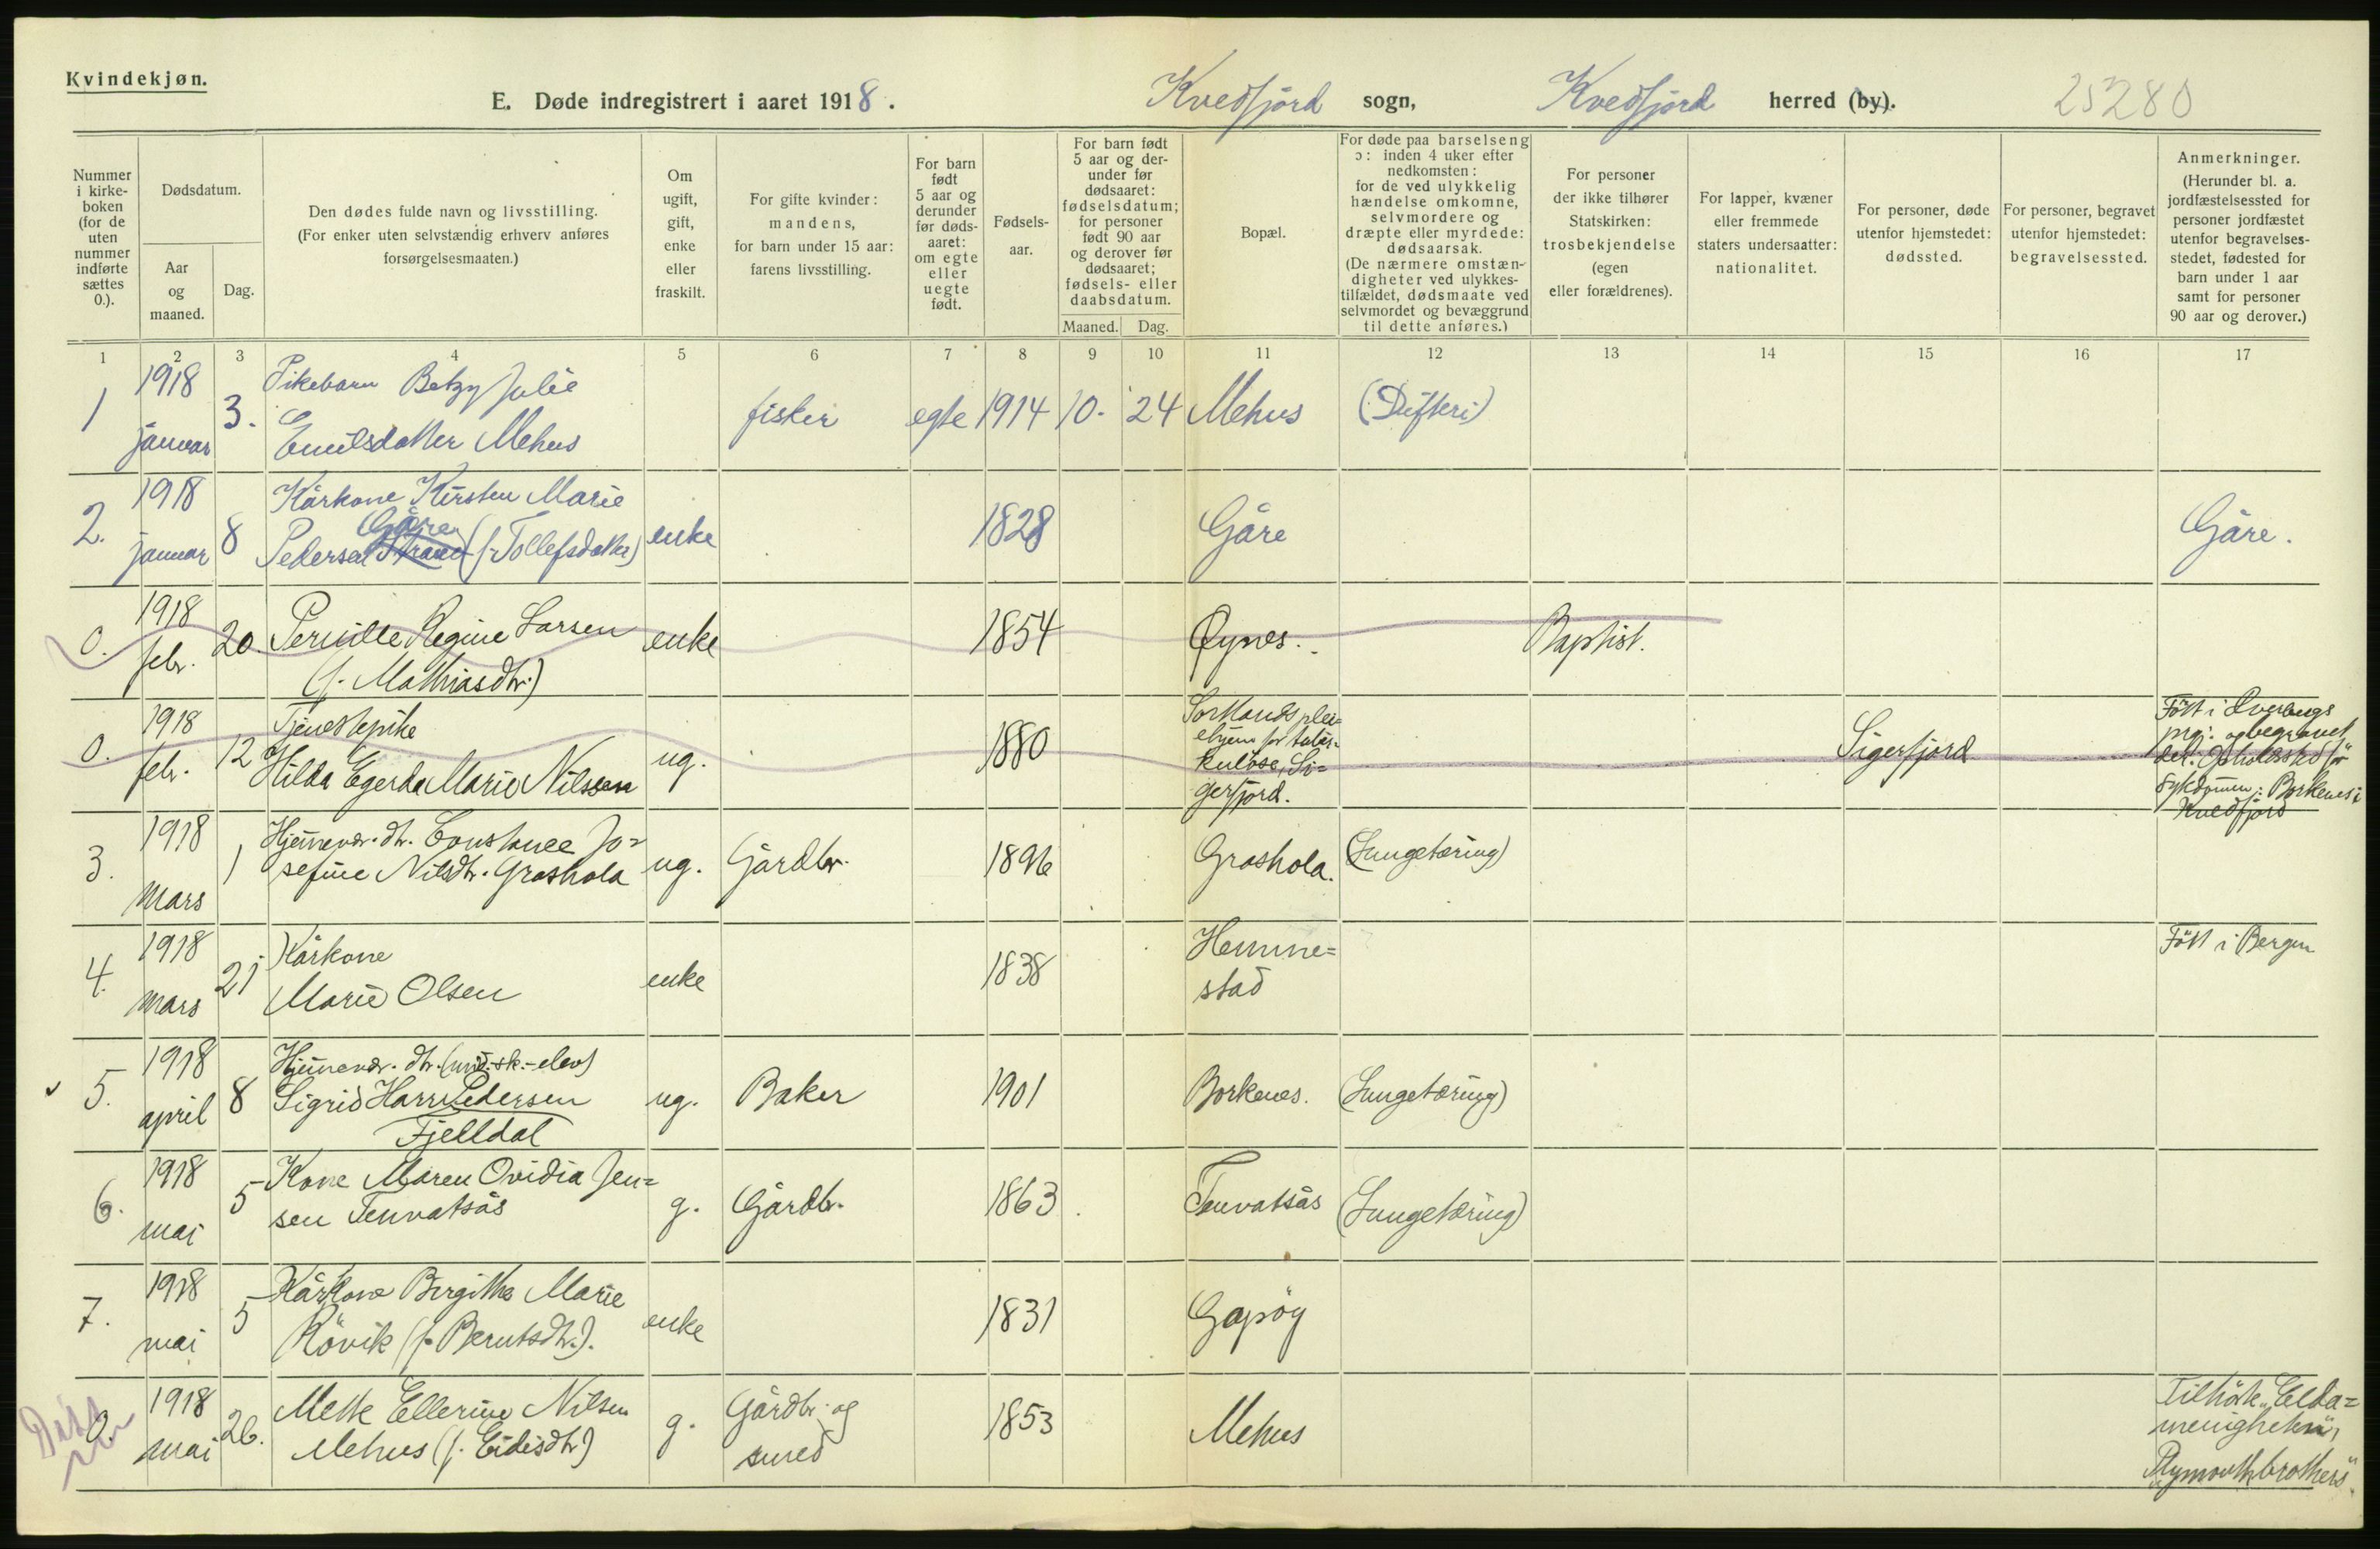 Kvindekjøn.
E. Døde indregistrert i aaret 1918.
Kvedfjord sogn, Kvedfjord herred (by). 25280
Nummer
i kirke-
boken
(for de
uten
nummer
indførte
sættes
0.).
Dødsdatum.
Aar
og
maaned.
Dag.
Den dødes fulde navn og livsstilling.
(For enker uten selvstændig erhverv anføres
forsørgelsesmaaten.)
Om
ugift,
gift,
enke
eller
fraskilt.
For gifte kvinder:
mandens,
for barn under 15 aar:
farens livsstilling.
For barn
født
5 aar og
derunder
før døds-
aaret:
om egte
eller
uegte
født.
Fødsels-
aar.
For barn født
5 aar og der-
under før
dødsaaret:
fødselsdatum;
for personer
født 90 aar
og derover før
dødsaaret;
fødsels- eller
daabsdatum.
Maaned. Dag.
Bopæl.
For døde paa barselseng
ɔ: inden 4 uker efter
nedkomsten:
for de ved ulykkelig
hændelse omkomne,
selvmordere og
dræpte eller myrdede:
dødsaarsak.
(De nærmere omstæn-
digheter ved ulykkes-
tilfældet, dødsmaate ved
selvmordet og bevæggrund
til dette anføres.)
For personer
der ikke tilhører
Statskirken:
trosbekjendelse
(egen
eller forældrenes).
For lapper, kvæner
eller fremmede
staters undersaatter:
nationalitet.
For personer, døde
utenfor hjemstedet:
dødssted.
For personer, begravet
utenfor hjemstedet:
begravelsessted.
Anmerkninger.
(Herunder bl. a.
jordfæstelsessted for
personer jordfæstet
utenfor begravelses-
stedet, fødested for
barn under 1 aar
samt for personer
90 aar og derover.)
1 2 3 4 5 6 7 8 9 10 11 12 13 14 15 16 17
1918 Pikebarn Betzy Julie
1 januar 3. Emilsdatter Mehus fisker egte 1914 10. 24 Mehus (Difteri)
1918 Kårkone Kirsten Marie
Gåre
2. januar 8 Pedersen Strand (f. Tollefsdatter) enke 1828 Gåre Gåre.
1918
0. febr. 20. Pernille Regine Larsen enke 1854 Øynes. Baptist.
(f. Mathiasdtr.)
1918 Tjenestepike
0. febr. 12 Hilda Egerda Marie Nilssen ug. 1880
Sortlands plei=
ehjem for tuber=
kuløse, Si=
gerfjord.
Sigerfjord
Født i Kvedfjord
1918 Hjemmevær. dtr. Constance Jo=
3. mars 1 sefine Nilsdtr. Grashola ug. Gårdbr. 1896 Grashola. (Lungetæring)
1918 Kårkone
4. mars 21 Marie Olsen enke 1838 Hemme=
stad
Født i Bergen
1918 Hjemmevær. dtr. (mid.-sk.-elev)
5. april 8 Sigrid Harr Pedersen ug. Baker 1901 Borkenes. (Lungetæring)
Fjelldal
1918 Kone Maren Ovidia Jen=
6. mai 5 sen Tenvatsås g. Gårdbr. 1863 Tenvatsås (Lungetæring)
1918 Kårkone Birgitha Marie
7. mai 5 Røvik (f. Berntsdtr.). enke 1831 Gapøy
1918 Mette Ellerine Nilsen
0. mai 26. Mehus (f. Eidisdtr) g. Gårdbr. og
smed
1853 Mehus
Tilhørte „Elda=
menigheten",
„Plymouthbrothers".